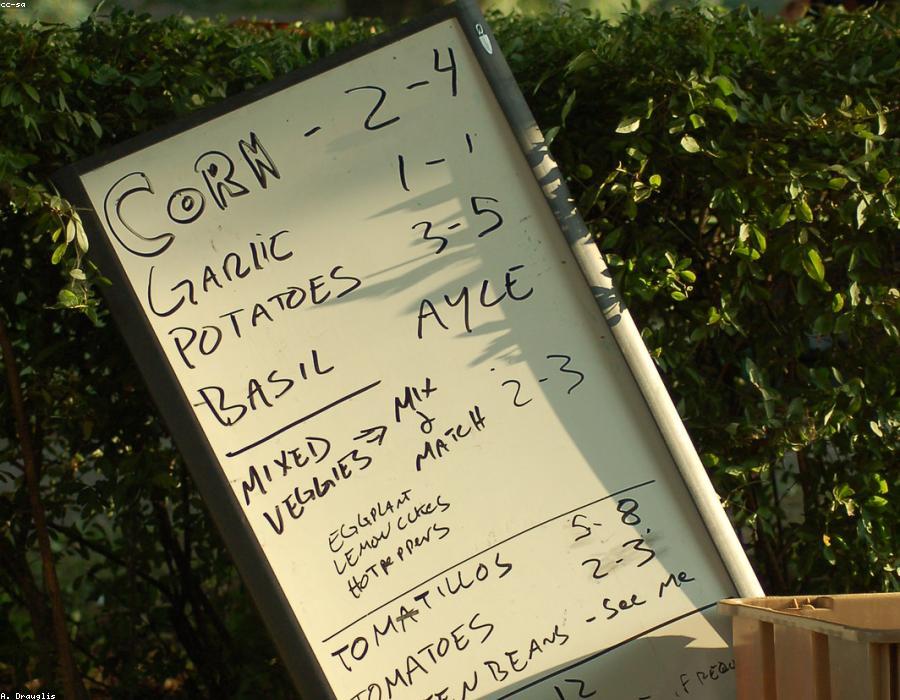 cc-sa
CORN - 2-4
GARLIC 1-1
POTATOES 3-5
BASIL AYLE
MIXED VEGGIES => MIX & MATCH 2-3
EGGPLANT
LEMON CUKES
HOT PEPPERS
TOMATILLOS 5-8
TOMATOES 2-3
EEN BEANS - See Me
12 - .F REQU
A. Drauglis